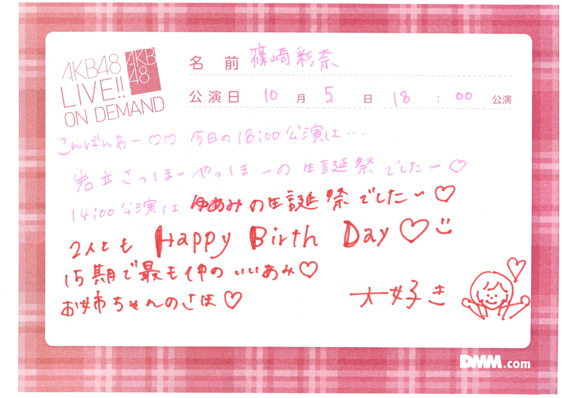 AKB48
LIVE!!
ON DEMAND
AKB
48
名前 篠崎彩奈
公演日 10月5日 18:00 公演
こんばんわー♡♡ 今日の18:00公演は…
岩立さっほーやっほーの生誕祭でしたー♡
14:00公演は ゆあみの生誕祭でしたー♡
2人とも Happy Birth Day♡
15期で最も仲のいいあみ♡
お姉ちゃんのさほ♡
大好き
DMM.com